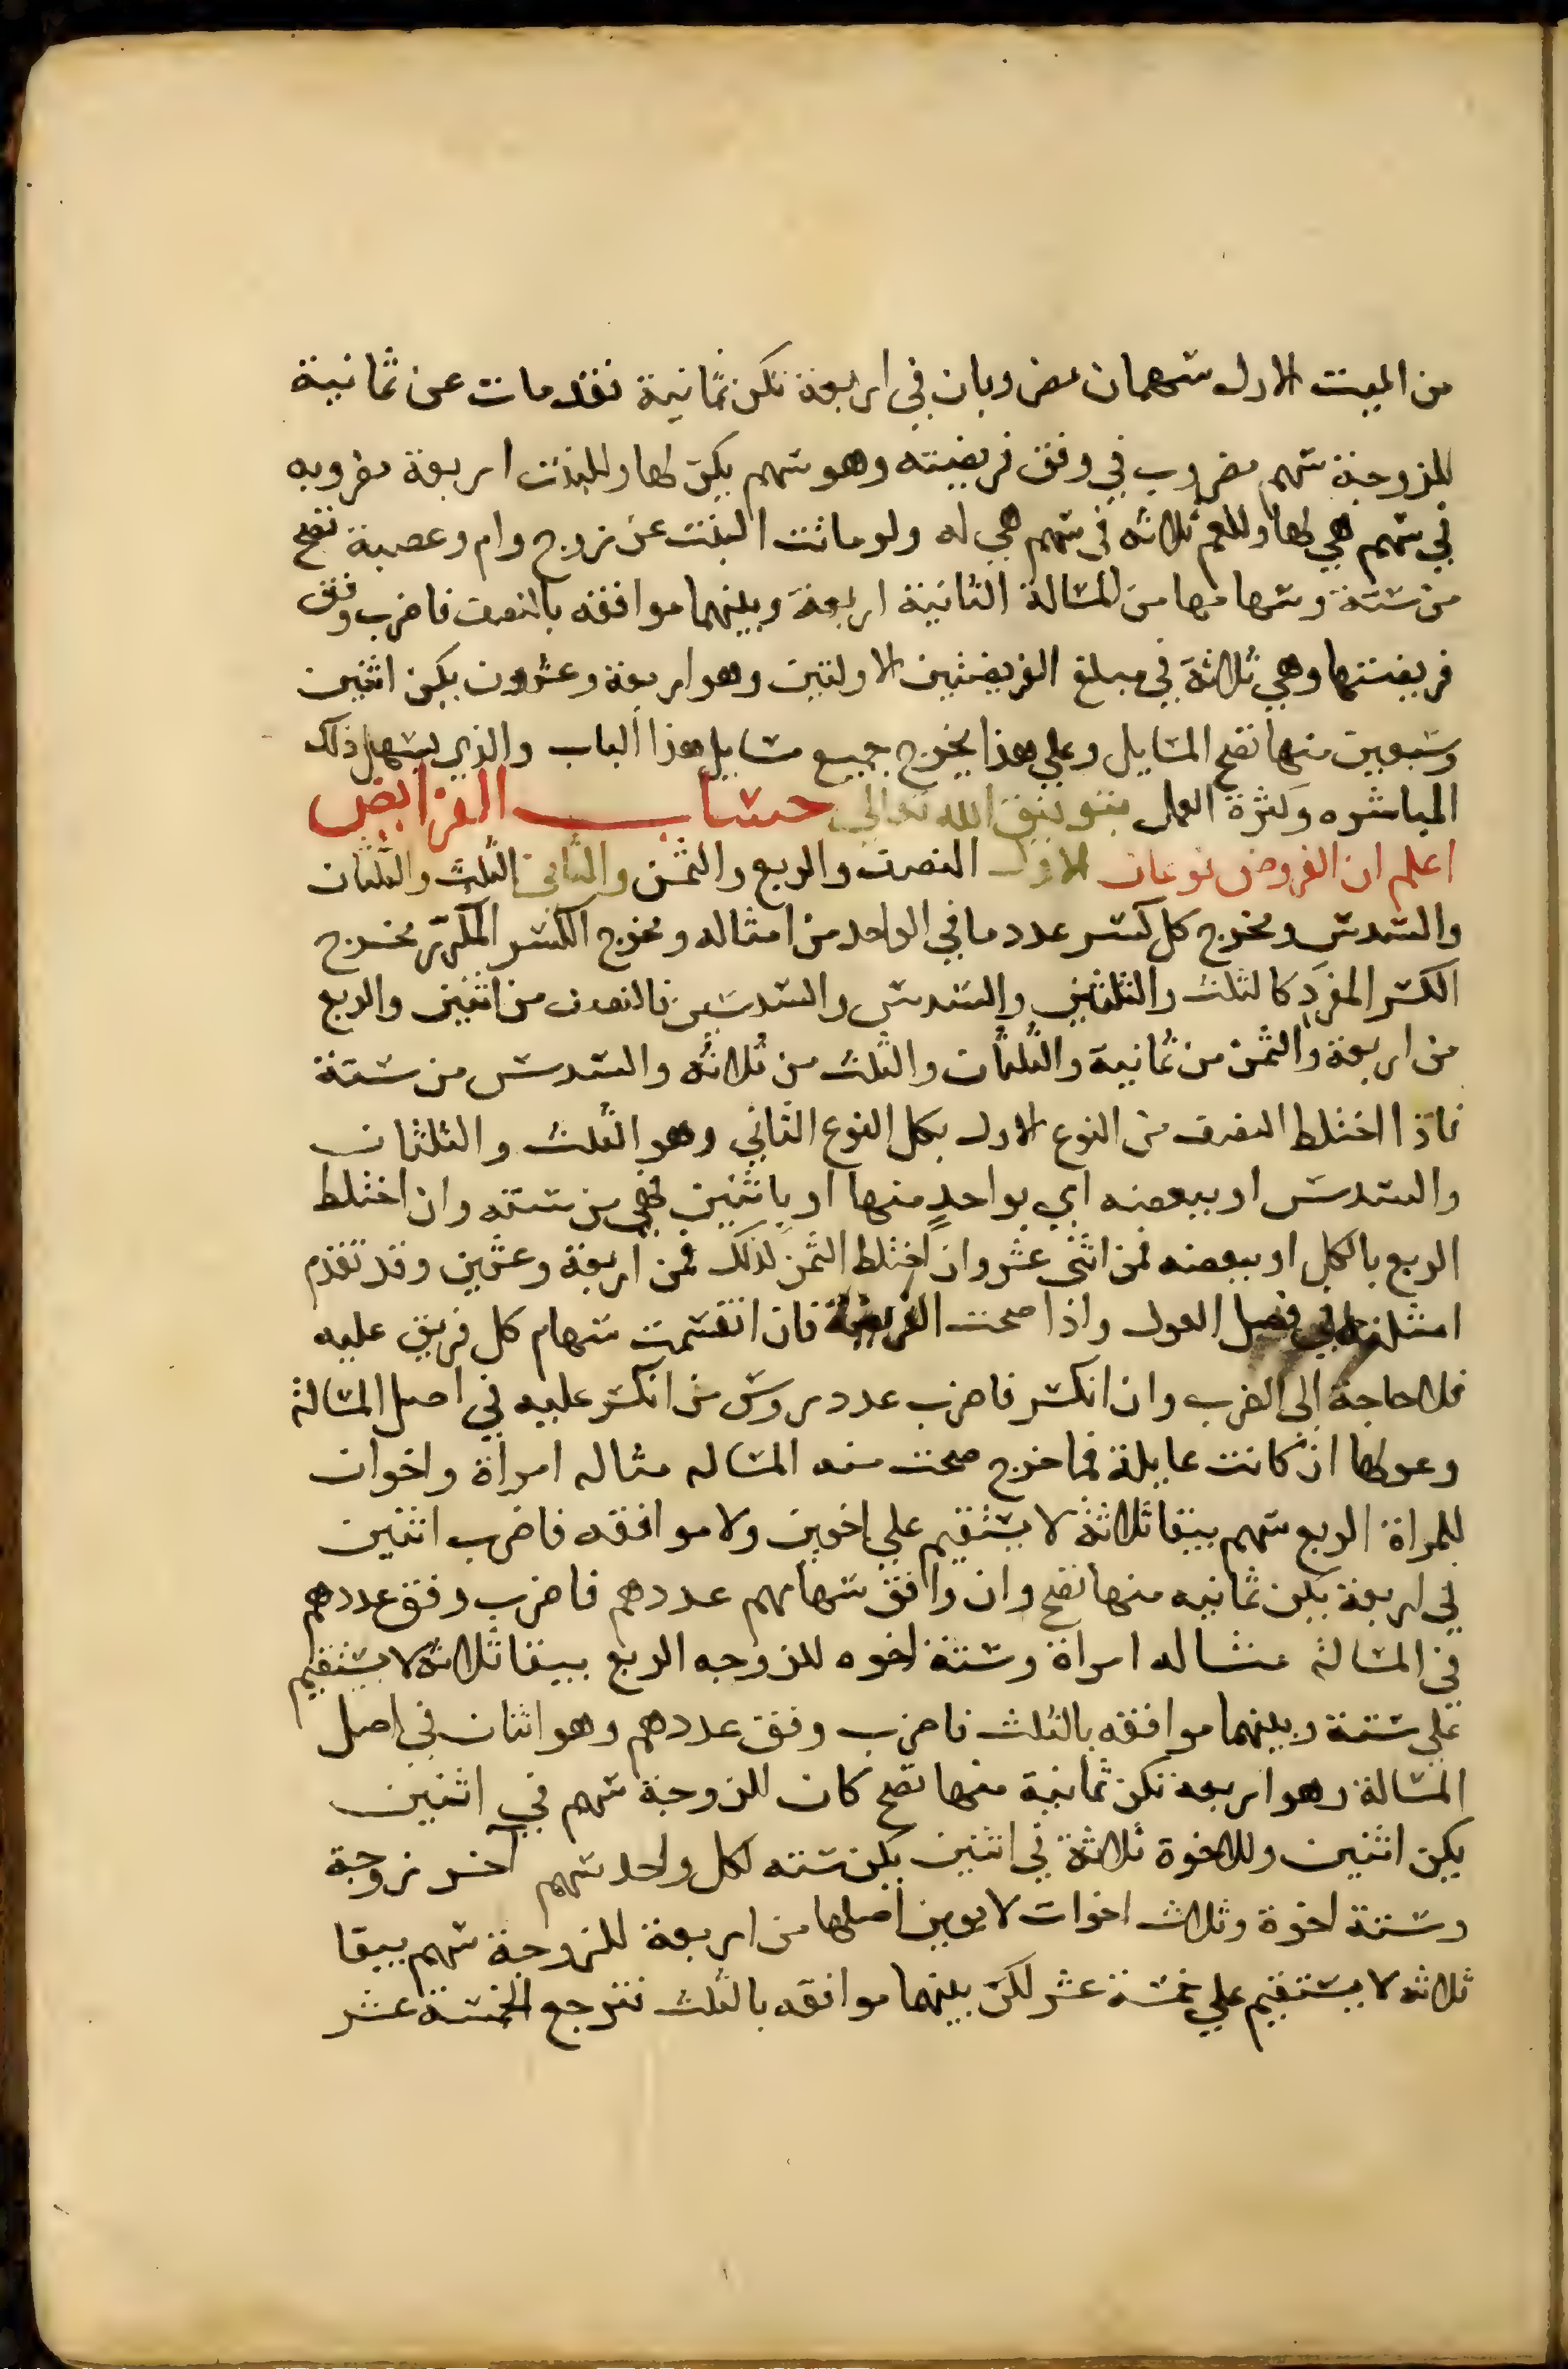 من الميت الاول سهمان مضروبان في اربعة تكن ثمانية فقد مات عن ثمانية
للزوجة سهم مضروب في وفق فريضته وهو سهم يكن لها وللبنت اربعة مضروبه
في سهم هي لها وللعم ثلاثه في سهم هي له ولو ماتت البنت عن زوج وام وعصبة تصح
من ستة وسهامها من المسالة الثانية اربعة وبينهما موافقه بالنصف فاضرب وفق
فريضتها وهي ثلاثة في مبلغ الفريضتين الاولتين وهو اربعة وعشرون يكن اثنين
وسبعين منها تصح المسايل وعلي هذا يخرج جميع مسايل هذا الباب والذي يسهل ذلك
المباشره وكثرة العمل بتوفيق الله تعالي حساب الفرايض
اعلم ان الفروض نوعان الاول النصف والربع والثمن والثاني الثلث والثلثان
والسدس ومخرج كل كسر عدد ما في الواحد من امثاله ومخرج الكسر المكرر مخرج
الكسر المفرد كالثلث والثلثين والسدس والسدسين فالنصف من اثنين والربع
من اربعة والثمن من ثمانية والثلثان والثلث من ثلاثه والسدس من ستة
فاذا اختلط النصف من النوع الاول بكل النوع الثاني وهو الثلث والثلثان
والسدس او ببعضه اي بواحد منها او باثنين فهي من سته وان اختلط
الربع بالكل او ببعضه فمن اثني عشر وان اختلط الثمن لذلك فمن اربعة وعشرين وقد تقدم
امثلتها في فصل العول واذا صحت الفريضة فان انقسمت سهام كل فريق عليه
فلا حاجة الي الضرب وان انكسر فاضرب عدد روس من انكسر عليه في اصل المسالة
وعولها ان كانت عايلة فما خرج صحت منه المساله مثاله امراة واخوان
للمراة الربع سهم يبقا ثلاثة لا يستقيم علي اخوين ولا موافقه فاضرب اثنين
في اربعة يكن ثمانيه منها تصح وان وافق سهامهم عددهم فاضرب وفق عددهم
في المسالة مثاله امراة وستة اخوه للزوجه الربع يبقا ثلاثة لا يستقيم
علي ستة وبينهما موافقه بالثلث فاضرب وفق عددهم وهو اثنان في اصل
المسالة وهو اربعة تكن ثمانية منها تصح كان للزوجة سهم في اثنين
يكن اثنين وللاخوة ثلاثة في اثنين يكن سته لكل واحد سهم اخر زوجة
وستة اخوة وثلاث اخوات لابوين اصلها من اربعة للزوجة سهم يبقا
ثلاثه لا يستقيم علي خمسة عشر لكن بينهما موافقه بالثلث فترجع الخمسة عشر